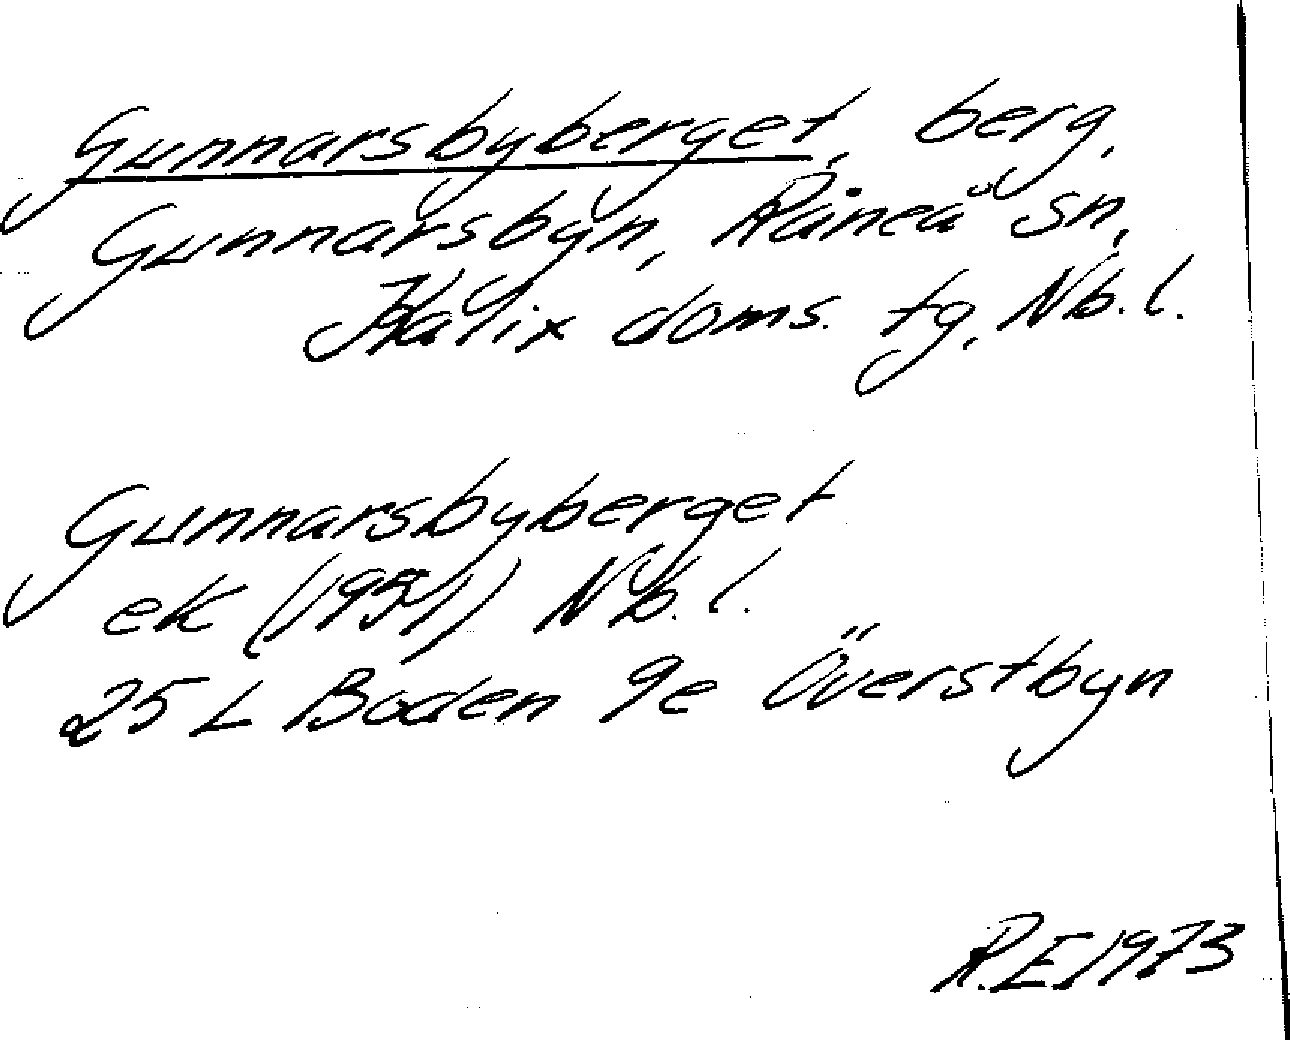 Gunnarsbyberget, berg,
Gunnarsbyn, Råneå sn,
Kalix doms. tg, Nb. l.
Gunnarsbyberget
ek (1951) Nb. l.
25 L Boden 9e Överstbyn
R.E 1973